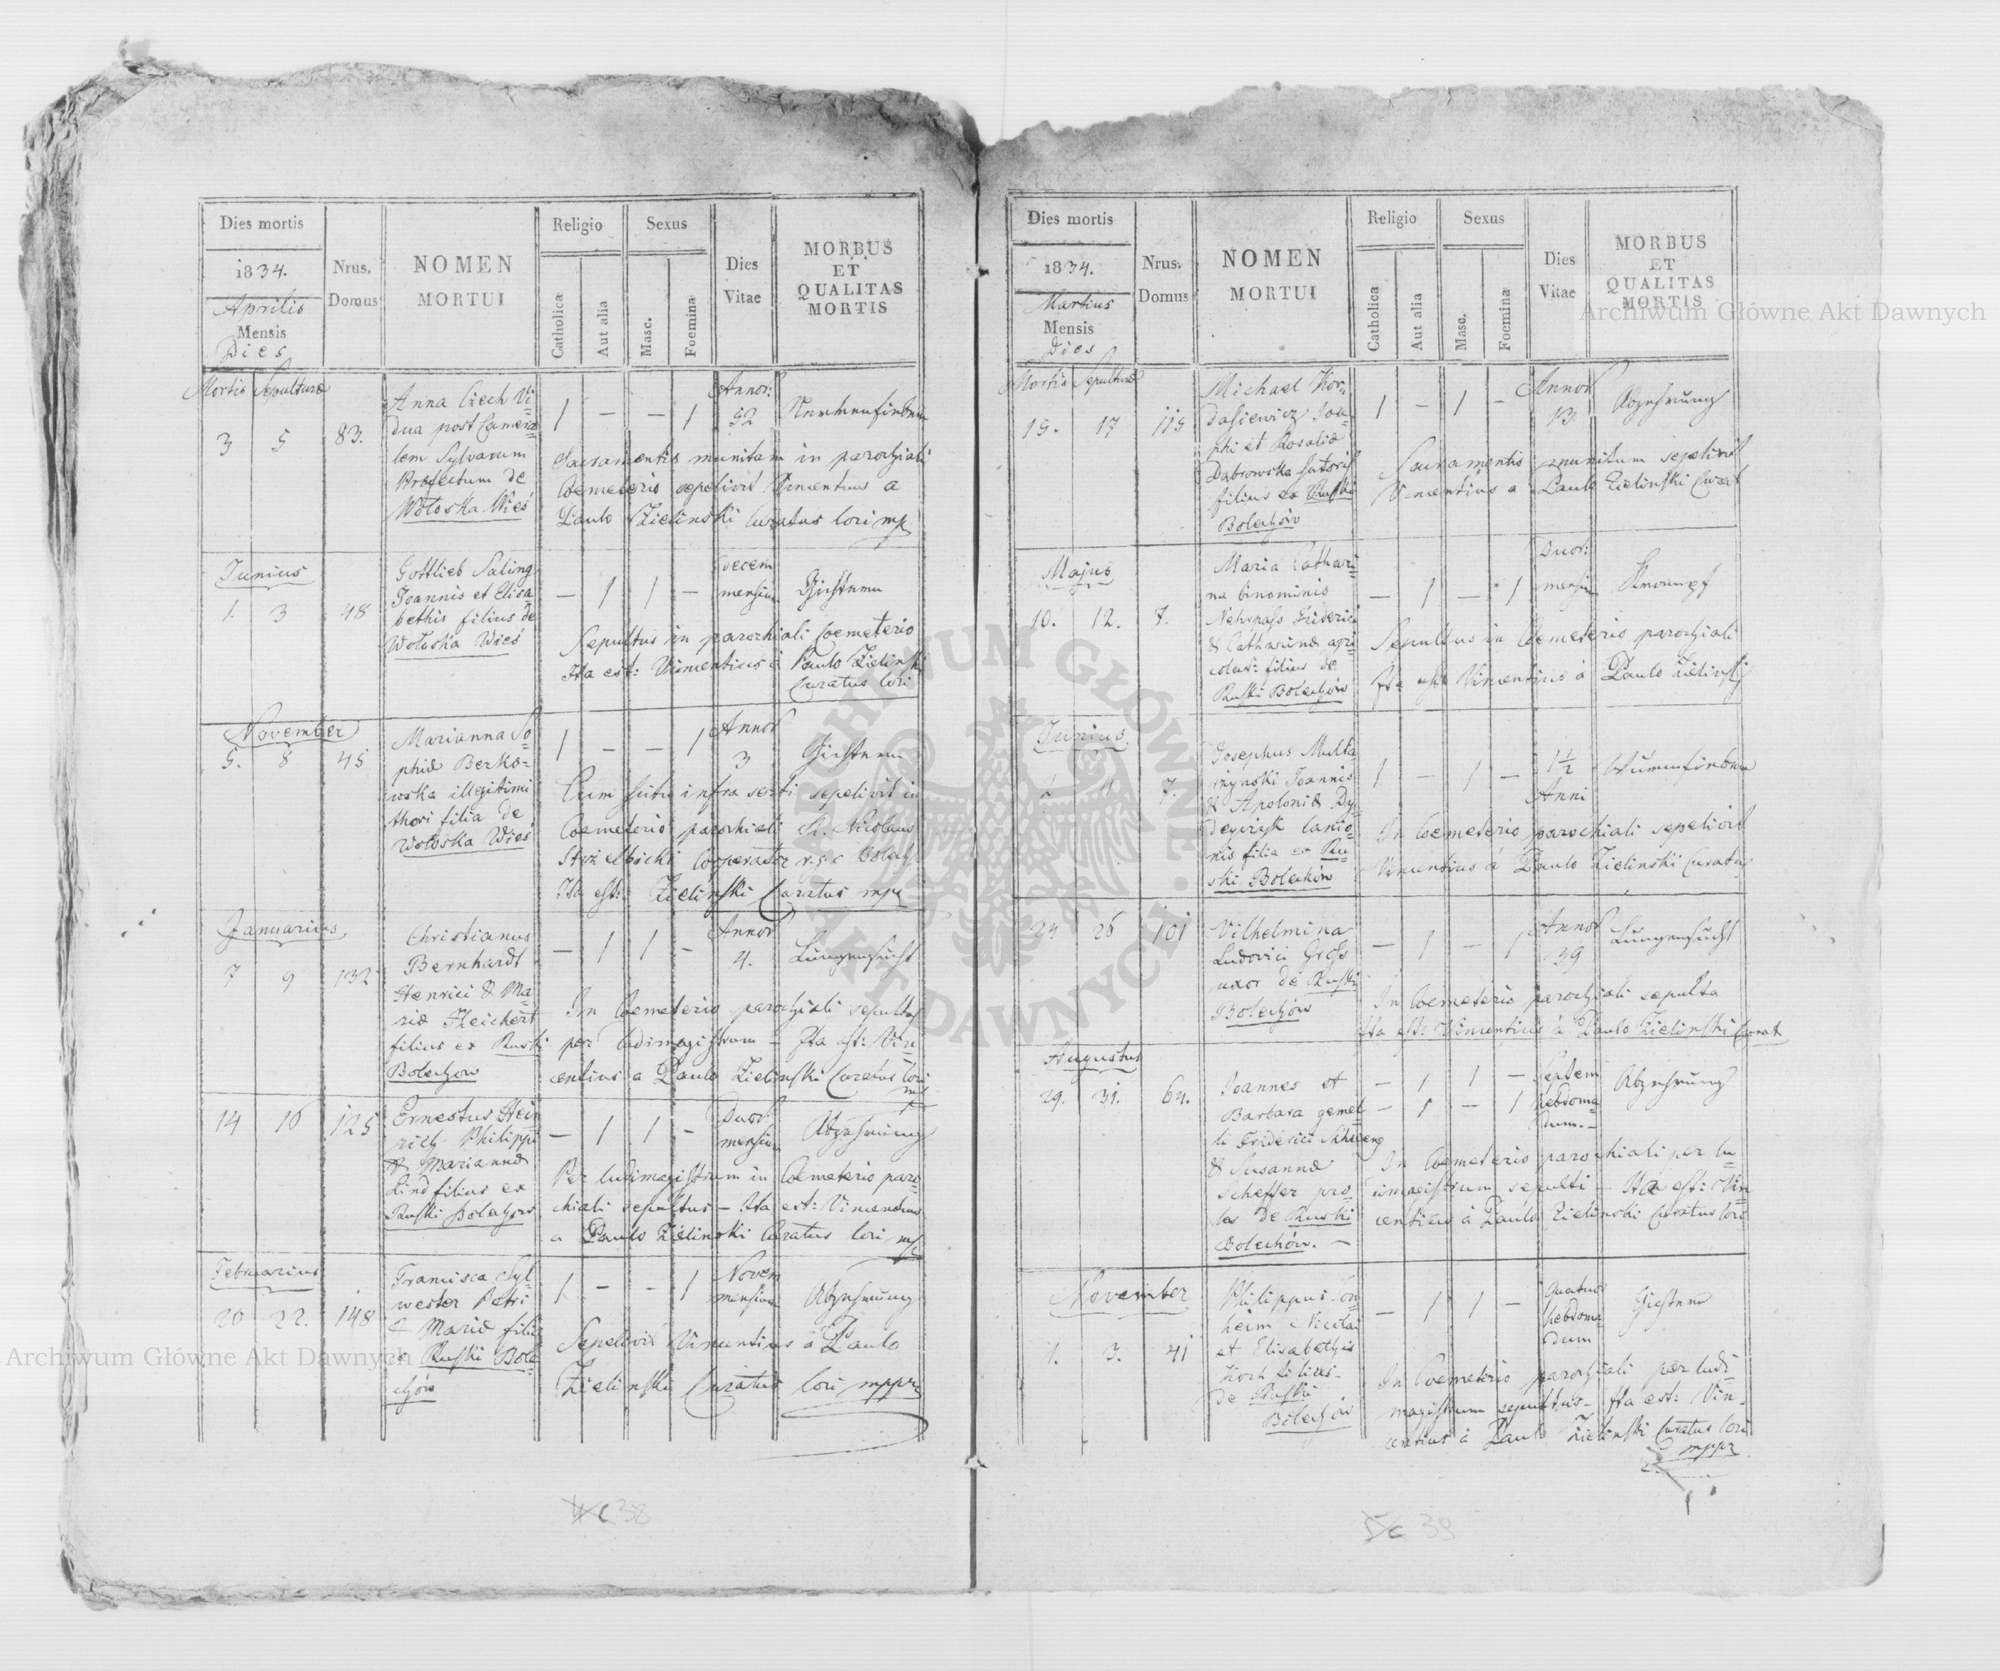 Dies mortis
1834.
Aprilis
Mensis
Dies
Nrus.
Domus
NOMEN
MORTUI
Religio
Catholica
Aut alia
Sexus
Masc.
Foemina
Dies
Vitae
MORBUS
ET
QUALITAS
MORTIS
Mortis Sepulturæ
3 5 83.
Anna Ciech Vi=
dua post Camera=
lem Sylvarum
Præfectum de
Wołoska Wieś
1 — — 1
Annor:
52
Sacramentis munitam in parochiali
Coemeterio sepelivit Vincentius a
Paulo Zielinski Curatus loci mp
Junius
1. 3 48
Gottlieb Saling
Joannis et Elisa
bethis filius de
Wołoska Wieś
— 1 1 —
decem
mensium
Sepultus in parochiali Coemeterio
Ita est: Vincentius à Paulo Zielinski
Curatus loci
November
5. 8 45
Marianna So=
phia Berko=
wska illegitimi
thori filia de
Wołoska Wieś
1 — — 1
Annor
3
Cum scitu infra scripti sepelivit in
Coemeterio parochiali R. Nicolaus
Cooperator r. g. c. Bolech.
Ita est: Zielinski Curatus mp
Januarius
7 9 132
Christianus
Bernhardt
Henrici & Ma=
riæ Reichert
filius ex Ruski
Bolechow
— 1 1 —
Annor
4.
Lungensucht
In Coemeterio parochiali sepultus
per ludimagistrum — Ita est: Vin=
centius a Paulo Zielinski Curatus loci
mp
14 16 125
Ernestus Hein
rich Philippi
& Mariannæ
Lind filius ex
Ruski Bolechow
— 1 1 —
Duor
mensium
Abzehrung
Per ludimagistrum in Coemeterio paro=
chiali sepultus — Ita est: Vincentius
a Paulo Zielinski Curatus loci mp
Februarius
20 22. 148
Francisca Syl=
wester Petri
& Mariæ filia
Ruski Bole
chów
1 — — 1
Novem
mensium
Abzehrung
Sepelivit Vincentius à Paulo
Zielinski Curatus loci mppr
38
Dies mortis
1834.
Martius
Mensis
Dies
Nrus.
Domus
NOMEN
MORTUI
Religio
Catholica
Aut alia
Sexus
Masc.
Foemina
Dies
Vitae
MORBUS
ET
QUALITAS
MORTIS
Mortis Sepulturæ
15. 17 115
Michael Kor=
dasiewicz Jose=
phi et Rosaliæ
Dabrowska sutoris
filius ex Ruski
Bolechów
1 — 1 —
Annor
13.
Abzehrung
Sacramentis munitum sepelivit
Vincentius a Paulo Zielinski Curat
Majus
10. 12. 7.
Maria Cathari=
na binominis
Friderici
& Catharinæ agri
colar: filius de
Ruski Bolechów
— 1 — 1
Duor:
mensium
Krampf
Sepultus in Coemeterio parochiali
Ita est Vincentius à Paulo Zielinski
Junius
11 7.
Josephus Multa
rzynski Joannis
& Apoloniæ
lanio=
nis filia ex Ru=
ski Bolechów
1 — 1 —
1½
Anni
In Coemeterio parochiali sepelivit
Vincentius à Paulo Zielinski Curatus
24 26 101
Vilhelmina
Ludovici Gross
uxor de Ruski
Bolechów
— 1 — 1
Annor
39
Lungensucht
In Coemeterio parochiali sepulta
Ita est: Vincentius à Paulo Zielinski Curat
Augustus
29. 31. 64.
Joannes et
Barbara gemel
li Friderici
& Susannæ
Scheffer pro=
les de Ruski
Bolechów. —
— 1 1 —
— 1 — 1
Septem
hebdoma
dum.—
Abzehrung
In Coemeterio parochiali per lu=
dimagistrum sepulti — Ita est: Vin=
centius à Paulo Zielinski Curatus loci
November
1. 3. 41
Philippus
heim Nicolai
et Elisabethis
Koch filius
de Ruski
Bolechów
— 1 1 —
Quatuor
hebdoma
dum
In Coemeterio parochiali per ludi
magistrum sepultus — Ita est: Vin=
centius à Paulo Zielinski Curatus loci
mppr
39
Archiwum Główne Akt Dawnych
Archiwum Główne Akt Dawnych
ARCHIWUM GŁÓWNE
AKT DAWNYCH